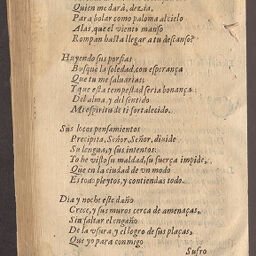 Quien me darà, dezia,
Para bolar como paloma al cielo
Alas, que el viento manso
Rompan hasta llegar a tu descanso?
Huyendo sus porfias
Busquè la soledad, con esperança
Que tu me saluarias;
Y que esta tempestad seria bonança
Del alma, y del sentido
Mi espiritu de ti fortalecido.
Sus locos pensamientos
Precipita, Señor, Señor, diuide
Su lengua, y sus intentos:
Yo he visto su maldad, su fuerça impide,
Que en la ciudad de vn modo
Es todo pleytos, y contiendas todo.
Dia y noche este daño
Crece, y sus muros cerca de amenaças,
Sin faltar el engaño
De la vsura y el logro de sus plaças,
Que yo para conmigo
Sufro